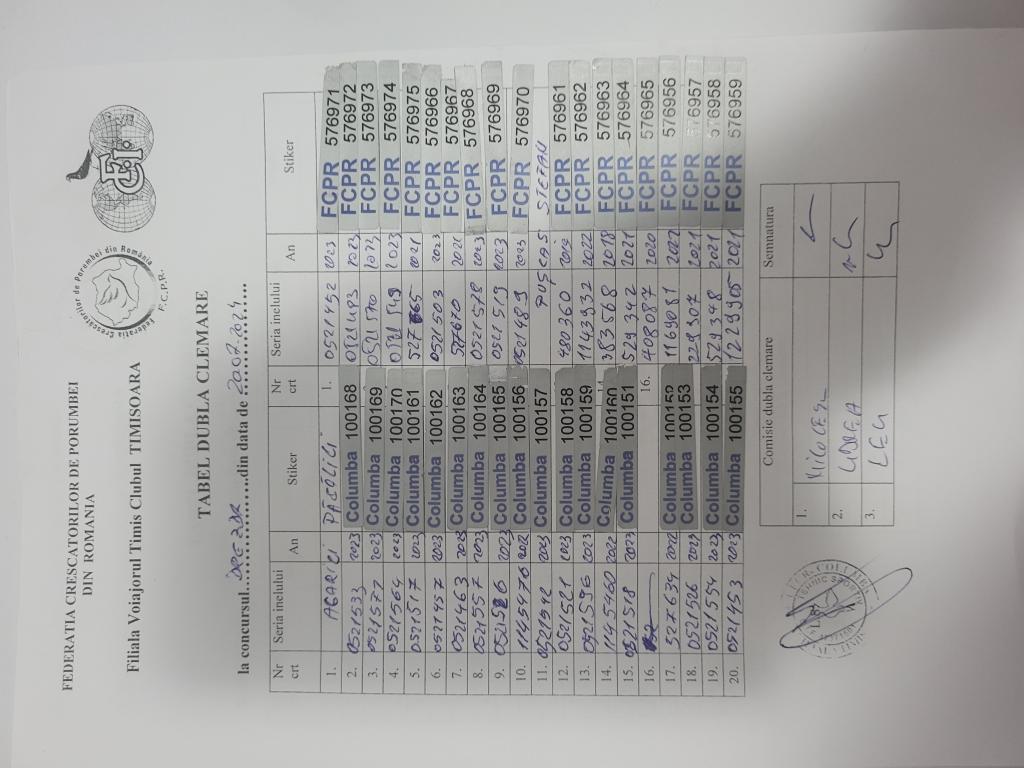 FEDERATIA CRESCATORILOR DE PORUMBEI
DIN ROMANIA
Filiala Voiajorul Timis Clubul TIMISOARA
Federatia Crescătorilor de Porumbei din România
F.C.P.R.
FCI
TABEL DUBLA CLEMARE
la concursul....................din data de 20.07.2024
Nr crt Seria inelului An Stiker Nr crt Seria inelului An Stiker
1. AGARICI PĂSĂLICI 1. 0521492 2023 FCPR 576971
2. 0521533 2023 Columba 100168 0521493 2023 FCPR 576972
3. 0521577 2023 Columba 100169 0521570 2023 FCPR 576973
4. 0521564 2023 Columba 100170 0521549 2023 FCPR 576974
5. 0521517 2023 Columba 100161 527665 2021 FCPR 576975
6. 0521457 2023 Columba 100162 0521503 2023 FCPR 576966
7. 0521463 2023 Columba 100163 527670 2021 FCPR 576967
8. 0521557 2023 Columba 100164 0521578 2023 FCPR 576968
9. 0521526 2023 Columba 100165 0521519 2023 FCPR 576969
10. 1145476 2022 Columba 100156 0521489 2023 FCPR 576970
11. 0521512 2023 Columba 100157 PUȘCAȘ STEFAN
12. 0521521 2023 Columba 100158 480360 2019 FCPR 576961
13. 0521596 2023 Columba 100159 1143932 2022 FCPR 576962
14. 1145460 2022 Columba 100160 383568 2018 FCPR 576963
15. 0521518 2023 Columba 100151 529342 2021 FCPR 576964
16. 16. 408087 2020 FCPR 576965
17. 527634 2022 Columba 100152 1169081 2022 FCPR 576956
18. 0521526 2023 Columba 100153 229307 2021 FCPR 576957
19. 0521554 2023 Columba 100154 529348 2021 FCPR 576958
20. 0521453 2023 Columba 100155 1229905 2021 FCPR 576959
Comisie dubla clemare Semnatura
1.
2. UDREA
3. LEU